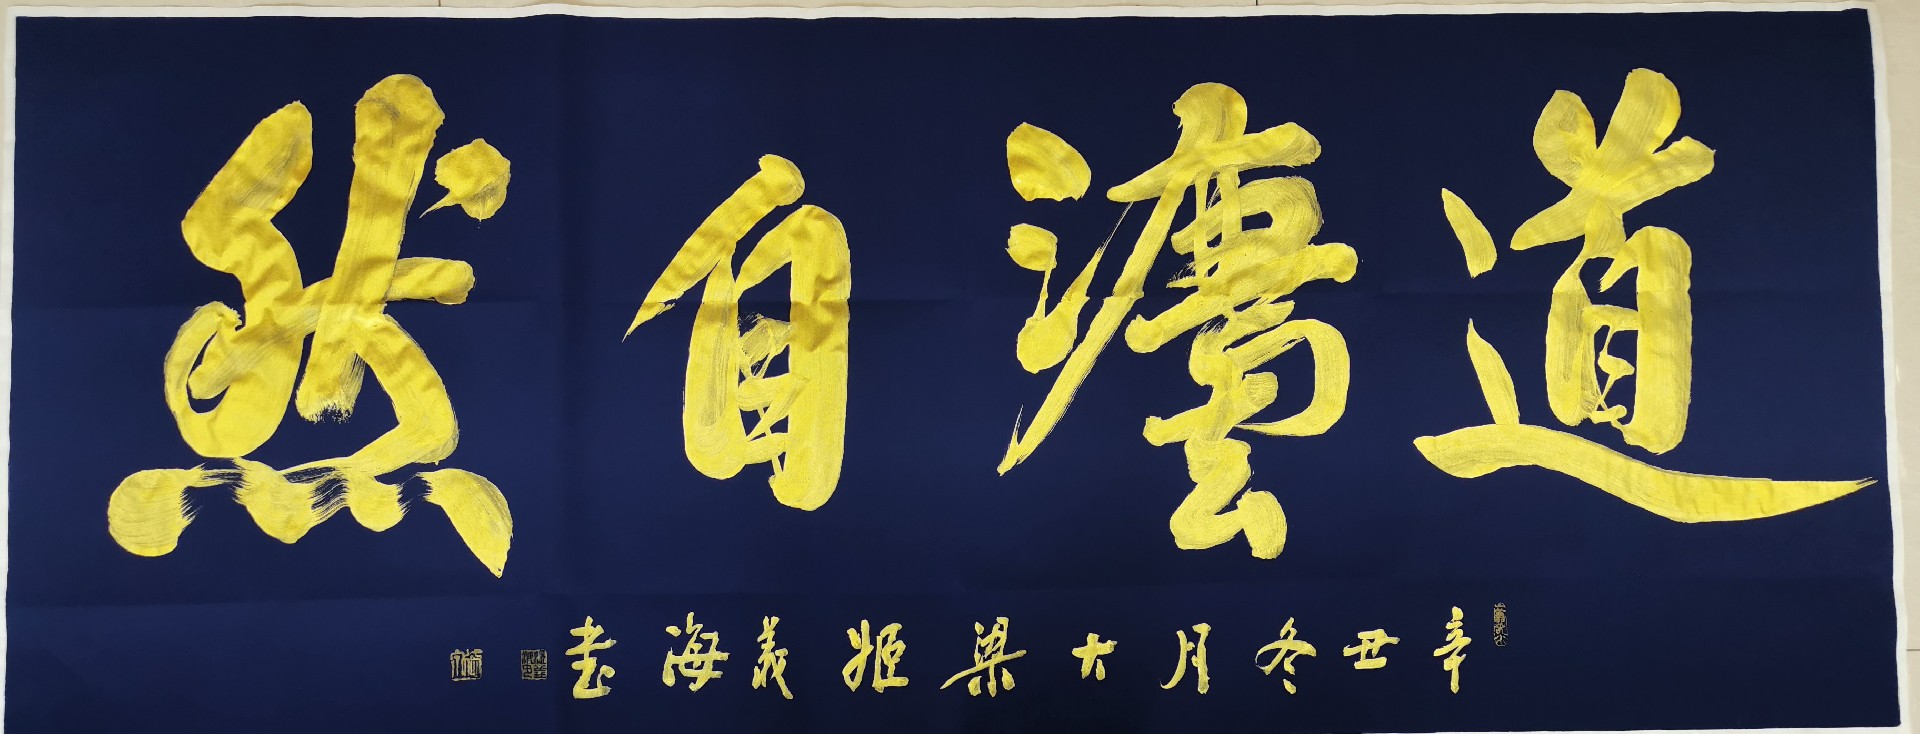 道灋自然
辛丑冬月大梁姬義海書